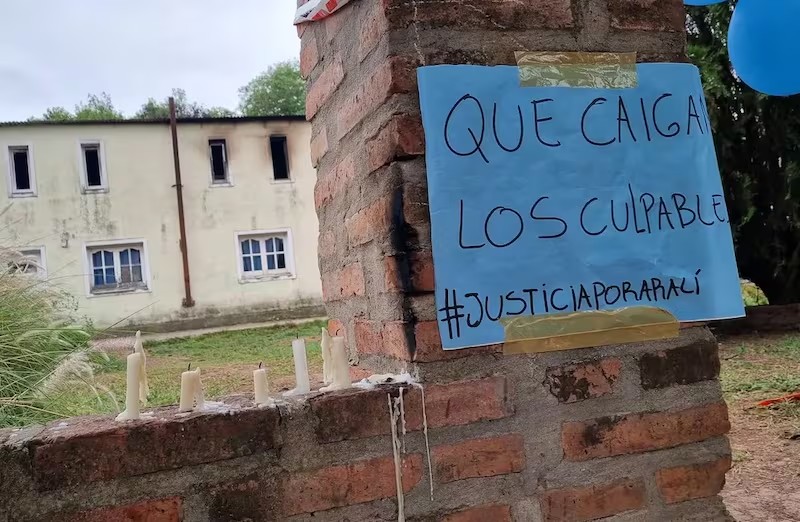 QUE CAIGAN
LOS CULPABLE
#JUSTICIAPORARALÍ